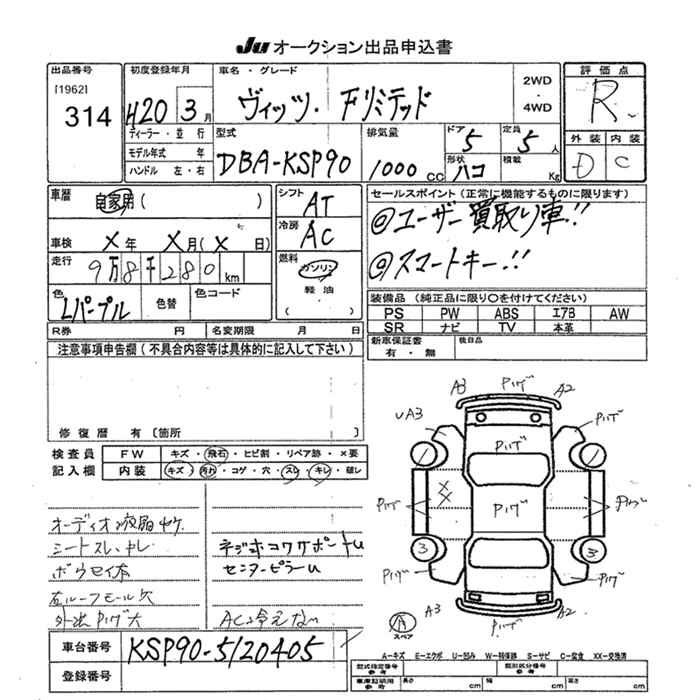 Ju オークション出品申込書
出品番号 初度登録年月 車名・グレード 2WD ・ 4WD 評価点
[1962] 314 H20 3月 ヴィッツ・Fリミテッド R
ディーラー・並行 型式 排気量 ドア 5 定員 5人 外装 内装
モデル年式 年 DBA-KSP90 1000cc 形状 ハコ 積載 Kg D C
ハンドル 左・右
車歴 自家用( ) シフト AT セールスポイント(正常に機能するものに限ります)
車検 ×年 ×月(× 日) 冷房 AC ◎ユーザー買取り車!!
走行 9万8千280km 燃料 ガソリン ◎スマートキー!!
軽油
( )
色 Lパープル 色替 色コード 装備品(純正品に限り○を付けてください)
PS PW ABS エアB AW
R券 円 名変期限 月 日 SR ナビ TV 本革
注意事項申告欄(不具合内容等は具体的に記入して下さい) 新車保証書 有・無 後日品
修復歴 有〔箇所 〕
検査員 FW キズ・飛石・ヒビ割・リペア跡・×要
記入欄 内装 キズ・汚れ・コゲ・穴・スレ・キレ・破レ
A3 Pハゲ A2
UA3 Pハゲ
Pハゲ
Pハゲ Pハゲ Pハゲ
3 3
Pハゲ Pハゲ
A3 Pハゲ A2
スペア
オーディオ液晶ヤケ
シートスレ、キレ ネジ式コワサポートU
ボウセイ本 センターピラーU
右ルーフモール欠
外出Pハゲ大 AC冷えない
車台番号 KSP90-5120405
A-キズ E-エクボ U-凹み W-補修跡 S-サビ C-腐食 XX-交換済
登録番号 型式指定番号 参考 類別区分番号 参考
車庫証明用 参考 長さ cm 幅 cm 高さ cm